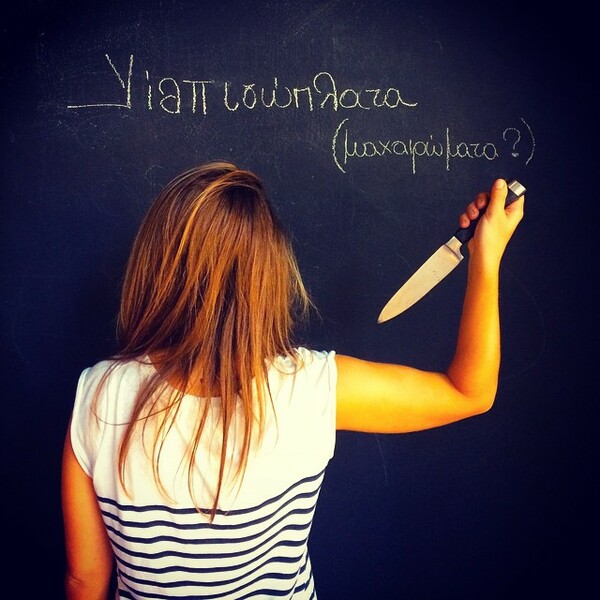 Για πισώπλατα
(μαχαιρώματα?)